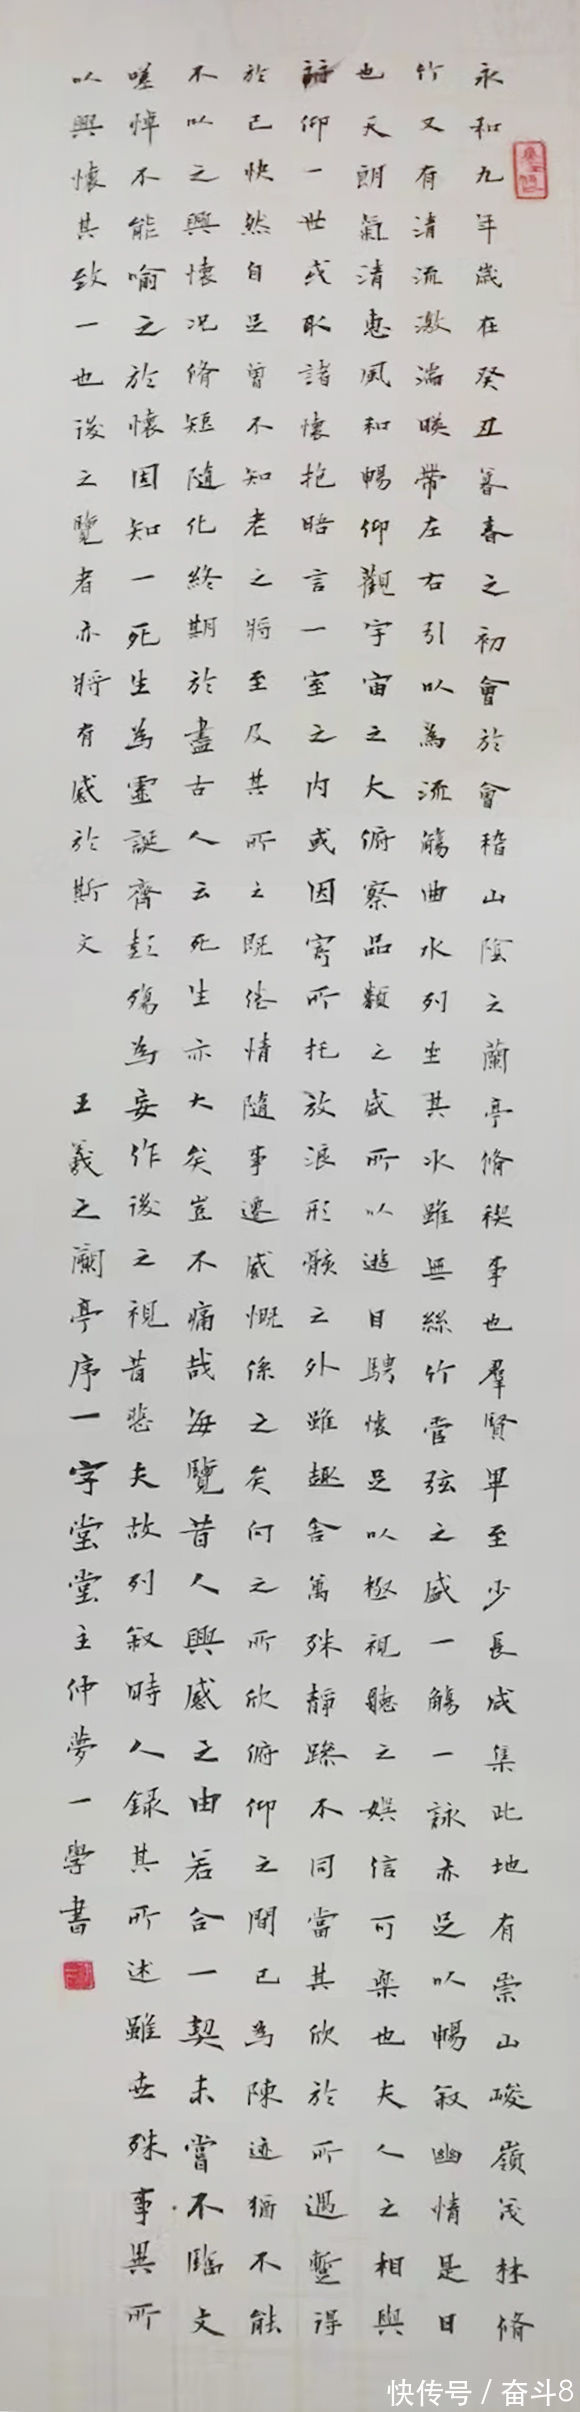 永和九年歲在癸丑暮春之初會於會稽山陰之蘭亭脩稧事也羣賢畢至少長咸集此地有崇山峻嶺茂林脩
竹又有清流激湍暎帶左右引以為流觴曲水列坐其次雖無絲竹管弦之盛一觴一詠亦足以暢叙幽情是日
也天朗氣清惠風和暢仰觀宇宙之大俯察品類之盛所以遊目騁懷足以極視聽之娛信可樂也夫人之相與
仰一世或取諸懷抱晤言一室之內或因寄所托放浪形骸之外雖趣舍萬殊靜躁不同當其欣於所遇蹔得
於己快然自足曾不知老之將至及其所之既倦情隨事遷感慨係之矣向之所欣俯仰之間已為陳迹猶不能
不以之興懷況脩短隨化終期於盡古人云死生亦大矣豈不痛哉每覽昔人興感之由若合一契未嘗不臨文
嗟悼不能喻之於懷固知一死生為虛誕齊彭殤為妄作後之視昔悲夫故列叙時人錄其所述雖世殊事異所
以興懷其致一也後之覽者亦將有感於斯文 王羲之蘭亭序一字堂堂主仲夢一學書
快传号 / 奋斗8